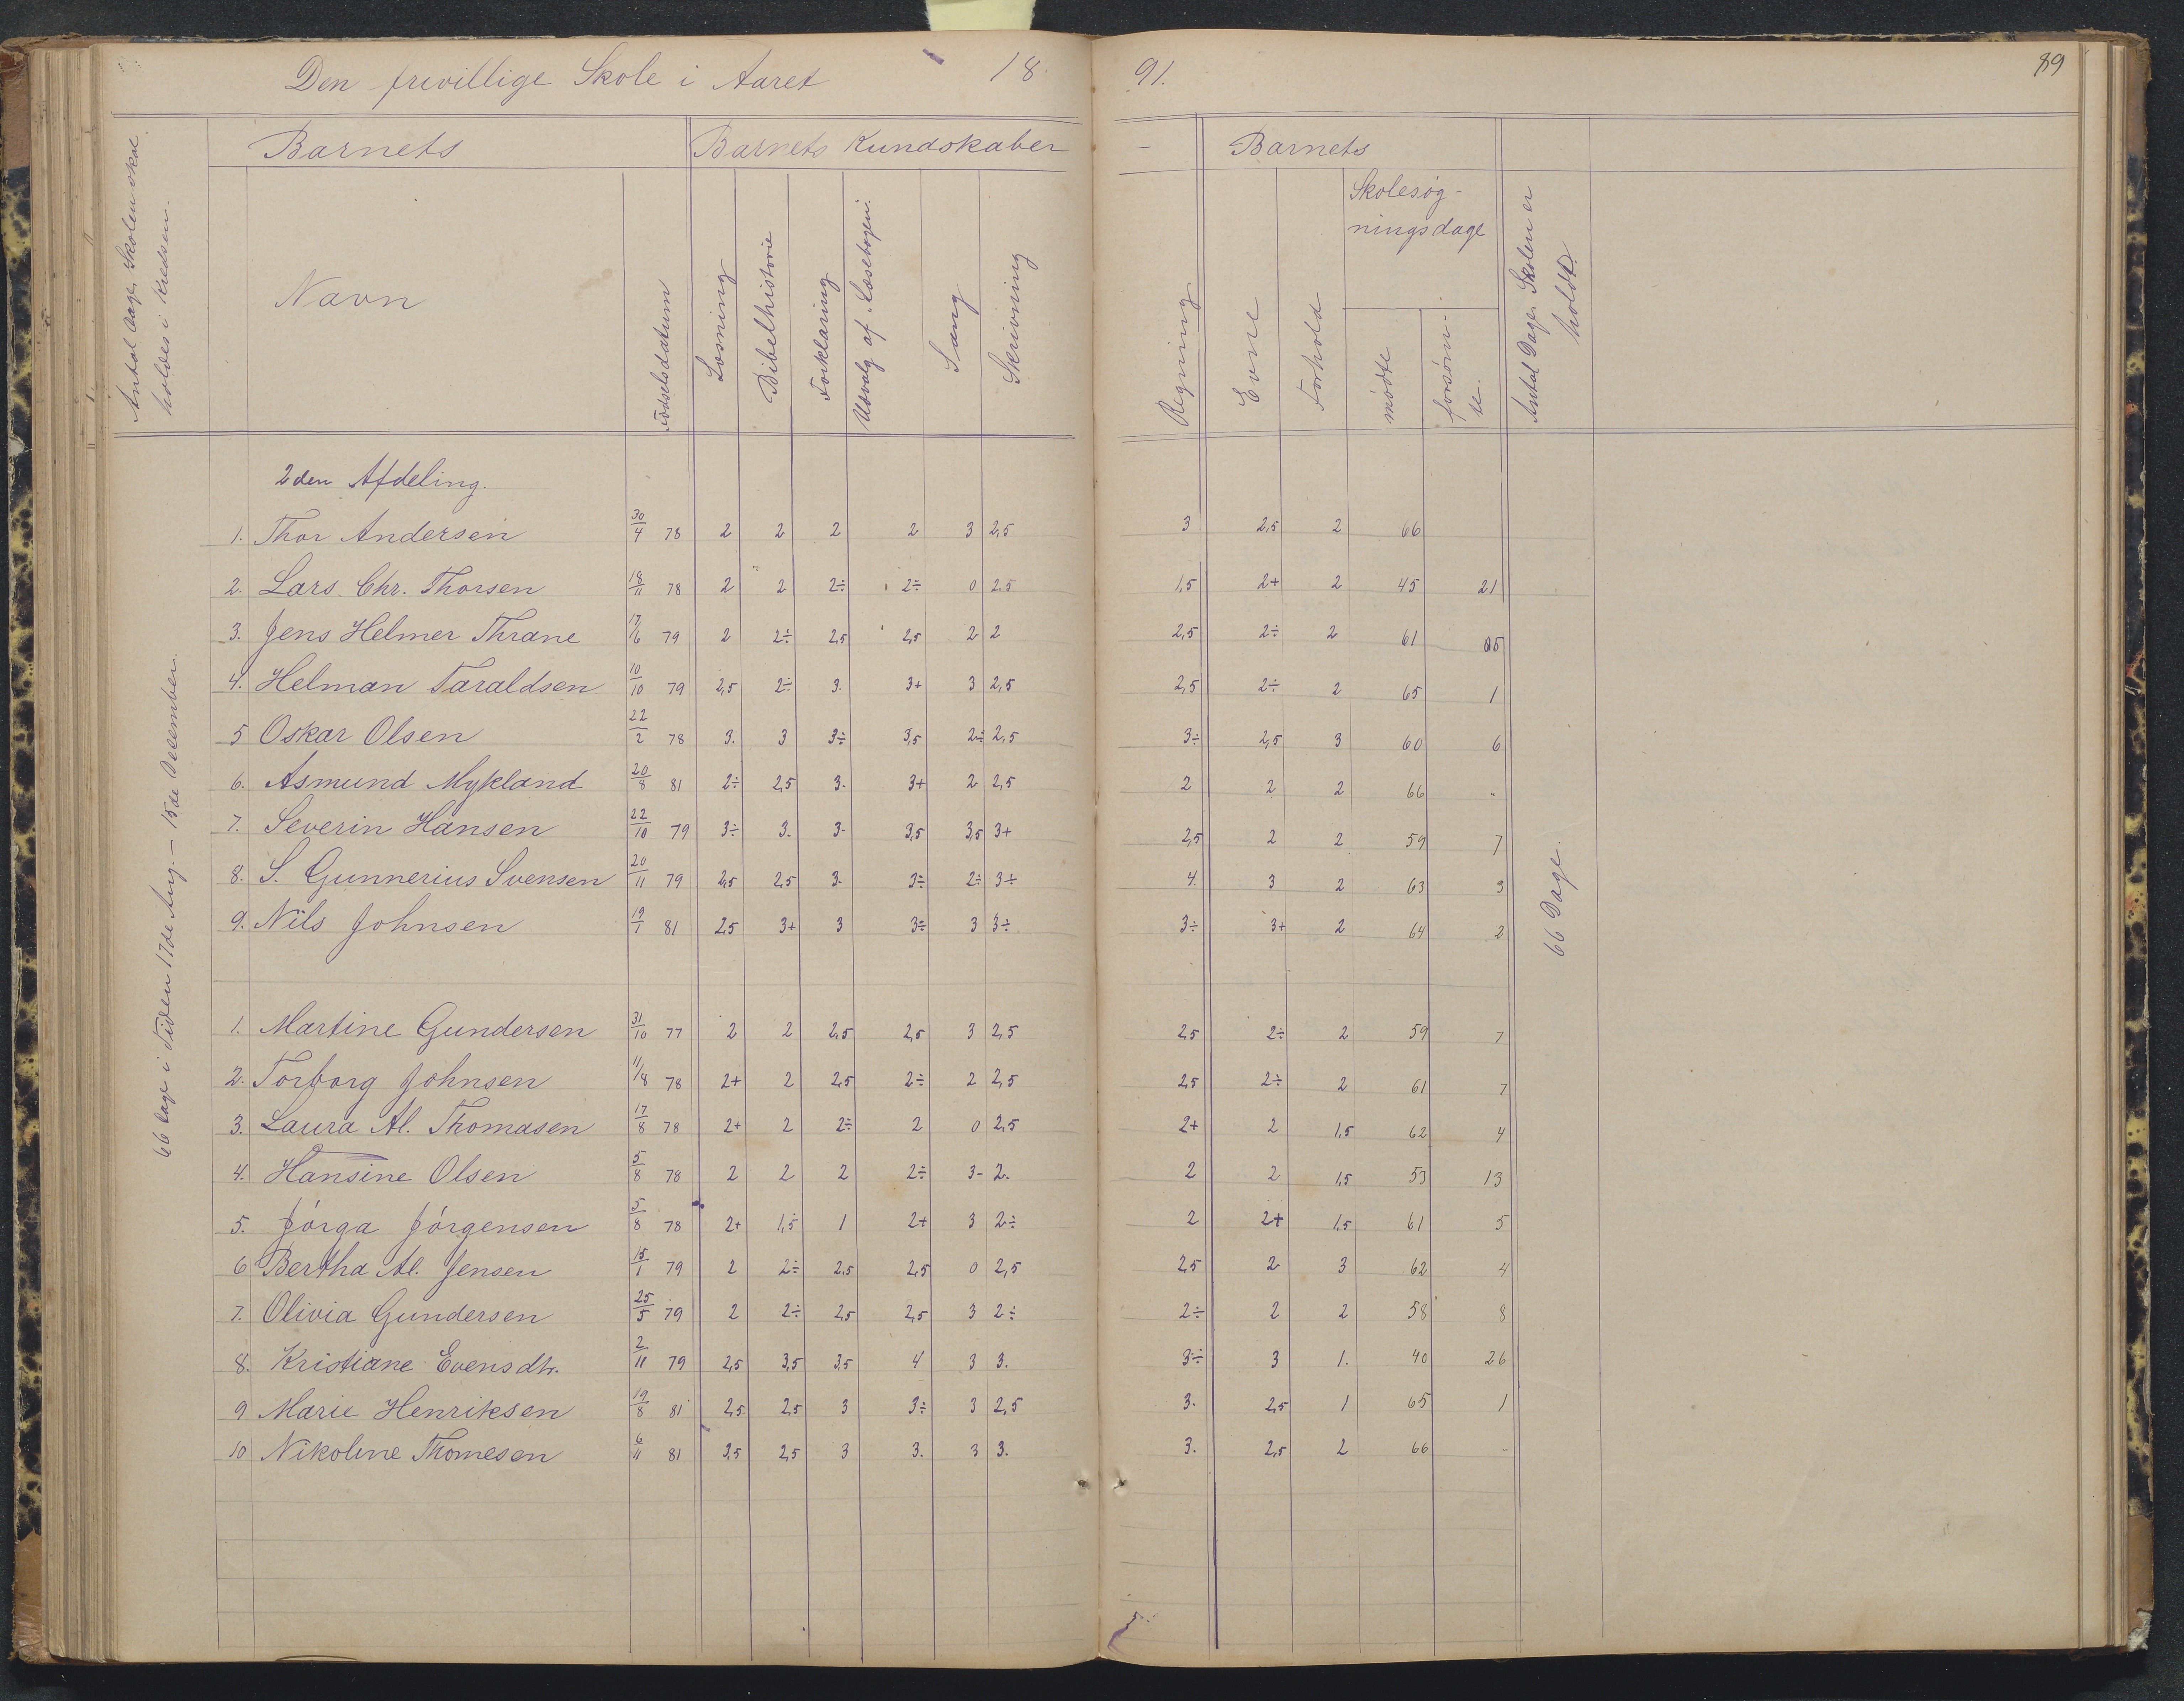 Den frivillige Skole i Aaret 18 91. 89
Antal Dage, Skolen skal holdes i Kredsen.
Barnets
Barnets Kundskaber
-
Barnets
Navn
Fødselsdatum
Læsning
Bibelhistorie
Forklaring
Udvalg af Læsebogen.
Sang
Skrivning
Regning
Evne
Forhold
Skolesøg-
ningsdage
mødte
forsøm-
te.
Antal Dage, Skolen er
holdt.
66 Dage i Tiden 17de Aug. - 15de December.
66 Dage.
2den Afdeling.
1. Thor Andersen 30/4 78 2 2 2 2 3 2,5 3 2,5 2 66
2. Lars Chr. Thorsen 18/11 78 2 2 2÷ 2÷ 0 2,5 1,5 2+ 2 45 21
3. Jens Helmer Thrane 17/6 79 2 2÷ 2,5 2,5 2 2 2,5 2÷ 2 61 5
4. Helman Taraldsen 10/10 79 2,5 2÷ 3. 3+ 3 2,5 2,5 2÷ 2 65 1
5 Oskar Olsen 22/2 78 3. 3 3÷ 3,5 2÷ 2,5 3÷ 2,5 3 60 6
6. Asmund Mykland 20/8 81 2÷ 2,5 3- 3+ 2 2,5 2 2 2 66 "
7. Severin Hansen 22/10 79 3÷ 3. 3- 3,5 3,5 3+ 2,5 2 2 59 7
8. S. Gunnerius Svensen 20/11 79 2,5 2,5 3- 3÷ 2÷ 3÷ 4. 3 2 63 3
9. Nils Johnsen 19/1 81 2,5 3+ 3 3÷ 3 3÷ 3÷ 3+ 2 64 2
1. Martine Gundersen 31/10 77 2 2 2,5 2,5 3 2,5 2,5 2÷ 2 59 7
2. Torborg Johnsen 11/8 78 2+ 2 2,5 2÷ 2 2,5 2,5 2÷ 2 61 7
3. Laura Al. Thomasen 17/8 78 2+ 2 2÷ 2 0 2,5 2+ 2 1,5 62 4
4. Hansine Olsen 5/8 78 2 2 2 2÷ 3- 2. 2 2 1,5 53 13
5. Jørga Jørgensen 5/8 78 2+ 1,5 1 2+ 3 2÷ 2 2+ 1,5 61 5
6 Bertha Al. Jensen 15/1 79 2 2÷ 2,5 2,5 0 2,5 2,5 2 3 62 4
7. Olivia Gundersen 25/5 79 2 2÷ 2,5 2,5 3 2÷ 2÷ 2 2 58 8
8. Kristiane Evensdtr. 2/11 79 2,5 3,5 3,5 4 3 3. 3÷ 3 1. 40 26
9 Marie Henriksen 19/8 81 2,5 2,5 3 3÷ 3 2,5 3. 2,5 1 65 1
10 Nikoline Thomesen 6/11 81 3,5 2,5 3 3. 3 3. 3. 2,5 2 66 -